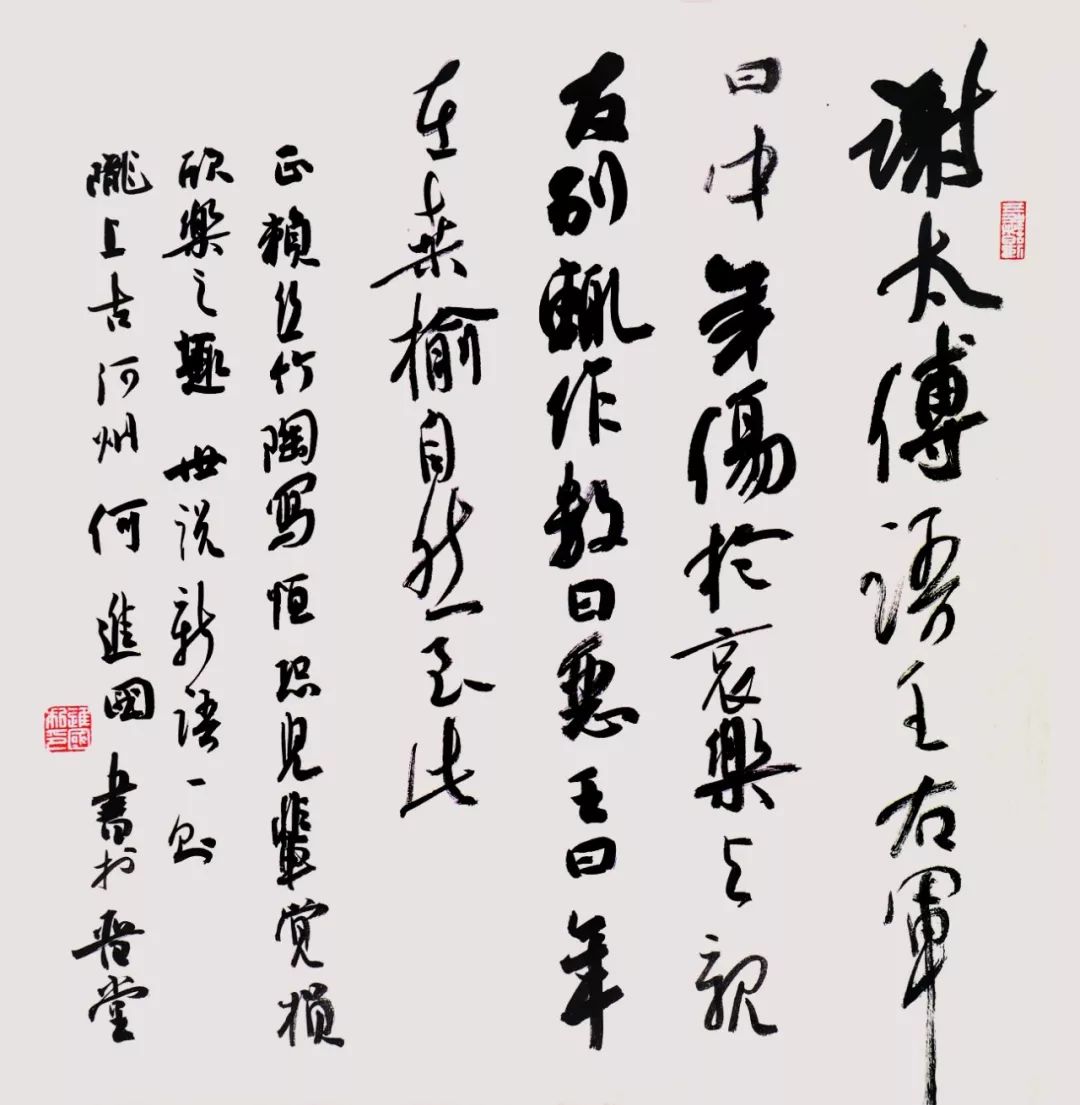 謝太傅語王右軍
曰中年傷於哀樂与親
友別輒作數日惡王曰年
在桑榆自然至此
正賴丝竹陶寫恒恐兒輩覺損
欣樂之趣 世説新語一則
隴上古河州何進國書於晉堂